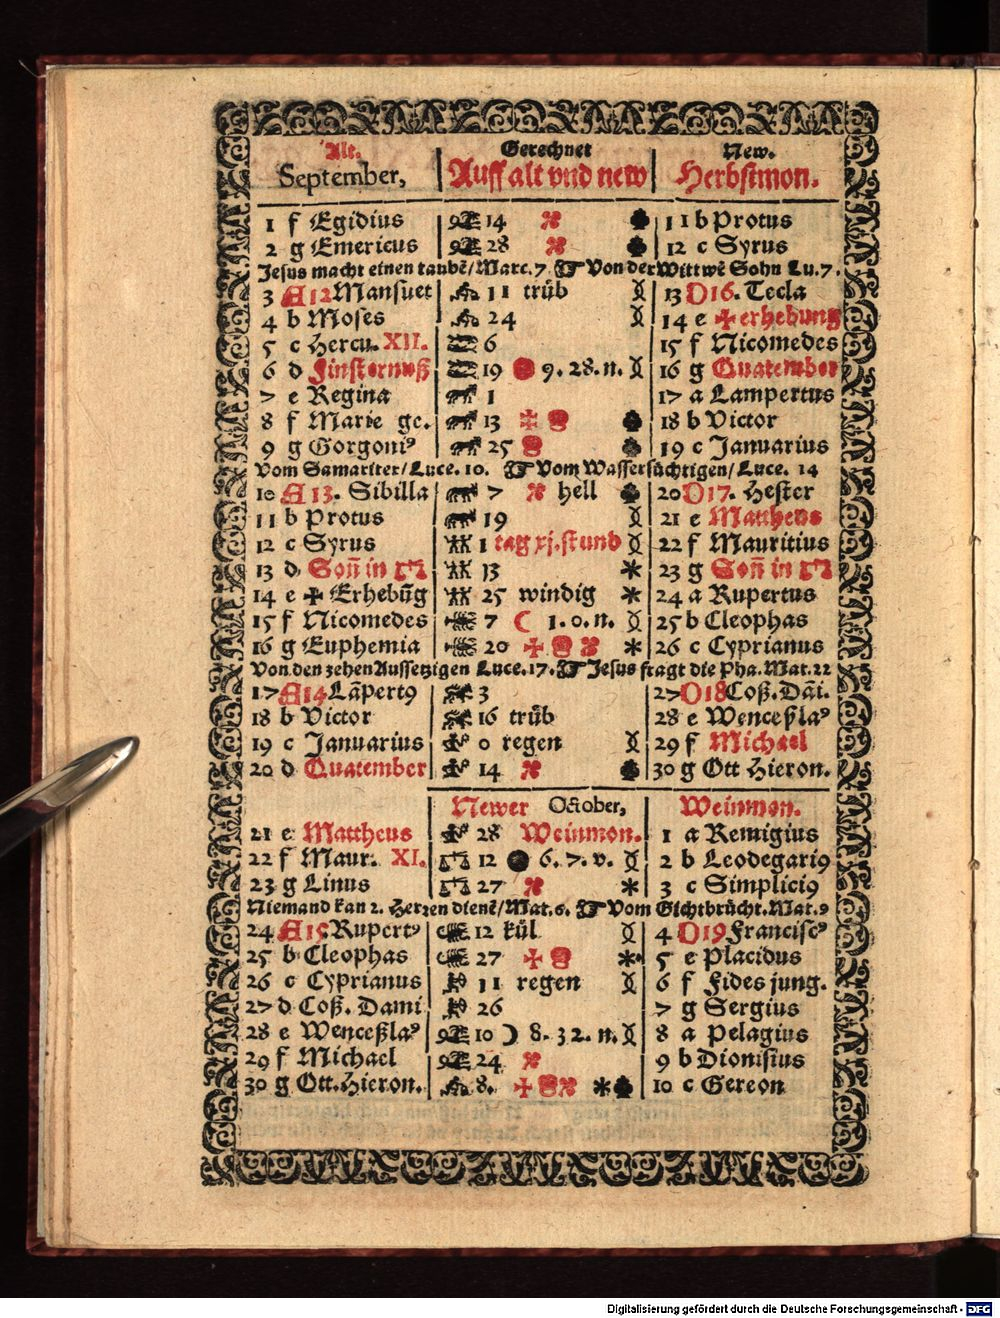 Alt. Gerechnet New.
September, Auff alt vnd new Herbstmon.
1 f Egidius 14 11 b Protus
2 g Emericus 28 12 c Syrus
Jesus macht einen taubē/Marc. 7. Von der Wittwē Sohn Lu. 7.
3 A 12 Mansuet 11 trüb 13 D 16. Tecla
4 b Moses 24 14 e ✠ erhebung
5 c Hercu. XII. 6 15 f Nicomedes
6 d Finsternuß 19 9. 28. n. 16 g Quatember
7 e Regina 1 17 a Lampertus
8 f Marie ge. 13 ✠ 18 b Victor
9 g Gorgoni⁹ 25 19 c Januarius
Vom Samariter/Luce. 10. Vom Wassersüchtigen/Luce. 14
10 A 13. Sibilla 7 hell 20 D 17. Hester
11 b Protus 19 21 e Mattheus
12 c Syrus 1 tag xj. stund 22 f Mauritius
13 d Soñ in ♎ 13 23 g Soñ in ♎
14 e ✠ Erhebūg 25 windig 24 a Rupertus
15 f Nicomedes 7 ☾ 1. 0. n. 25 b Cleophas
16 g Euphemia 20 ✠ 26 c Cyprianus
Von den zehen Aussetzigen Luce. 17. Jesus fragt die Pha. Mat. 22
17 A 14 Lāpert⁹ 3 27 D 18 Coß. Dāi.
18 b Victor 16 trüb 28 e Wenceßla⁹
19 c Januarius 0 regen 29 f Michael
20 d Quatember 14 30 g Ott Hieron.
Newer October, Weinmon.
21 e Mattheus 28 Weinmon. 1 a Remigius
22 f Maur. XI. 12 6. 7. v. 2 b Leodegari⁹
23 g Linus 27 3 c Simplici⁹
Niemand kan 2. Herzen dienē/Mat. 6. Vom Gichtbrücht. Mat. 9
24 A 15 Rupert⁹ 12 kül 4 D 19 Francisc⁹
25 b Cleophas 27 ✠ 5 e Placidus
26 c Cyprianus 11 regen 6 f Fides jung.
27 d Coß. Dami 26 7 g Sergius
28 e Wenceßla⁹ 10 ☽ 8. 32. n. 8 a Pelagius
29 f Michael 24 9 b Dionisius
30 g Ott. Hieron. 8. ✠ 10 c Gereon
Digitalisierung gefördert durch die Deutsche Forschungsgemeinschaft - DFG